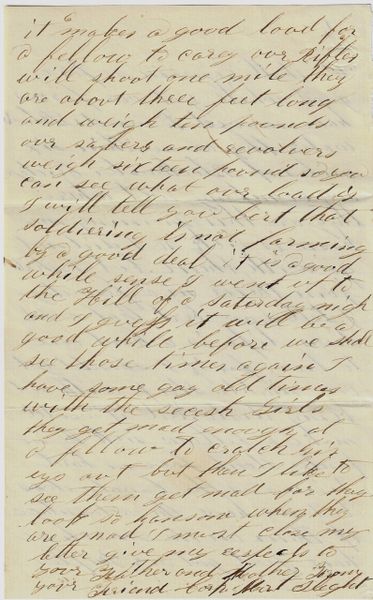 it makes a good load for
a fellow to carey our Rifles
will shoot one mile they
are about three feet long
and weigh ten pounds
our sabers and revolvers
weigh sixteen pound so you
can see what our load is
I will tell you bert that
soldiering is not farming
by a good deal it is a good
while sense I went up to
the Hill of a Saturday nigh
and I guess it will be a
good while before we shall
see those times again I
have some gay old times
with the secesh Girls
they get mad enough at
a fellow to cratch his
eys out but then I like to
see them get mad for they
look so hansom when they
are mad I must close my
letter give my respects to
your Father and Mother From
your Friend Corp Mart Sleght